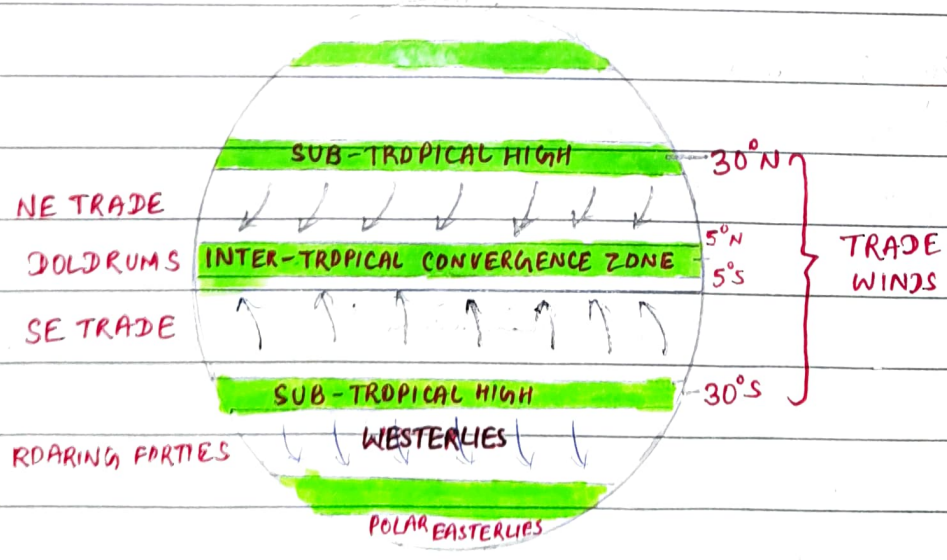 SUB-TROPICAL HIGH
30°N
NE TRADE
5°N
DOLDRUMS
INTER-TROPICAL CONVERGENCE ZONE
TRADE
WINDS
5°S
SE TRADE
SUB-TROPICAL HIGH
30°S
WESTERLIES
ROARING FORTIES
POLAR EASTERLIES